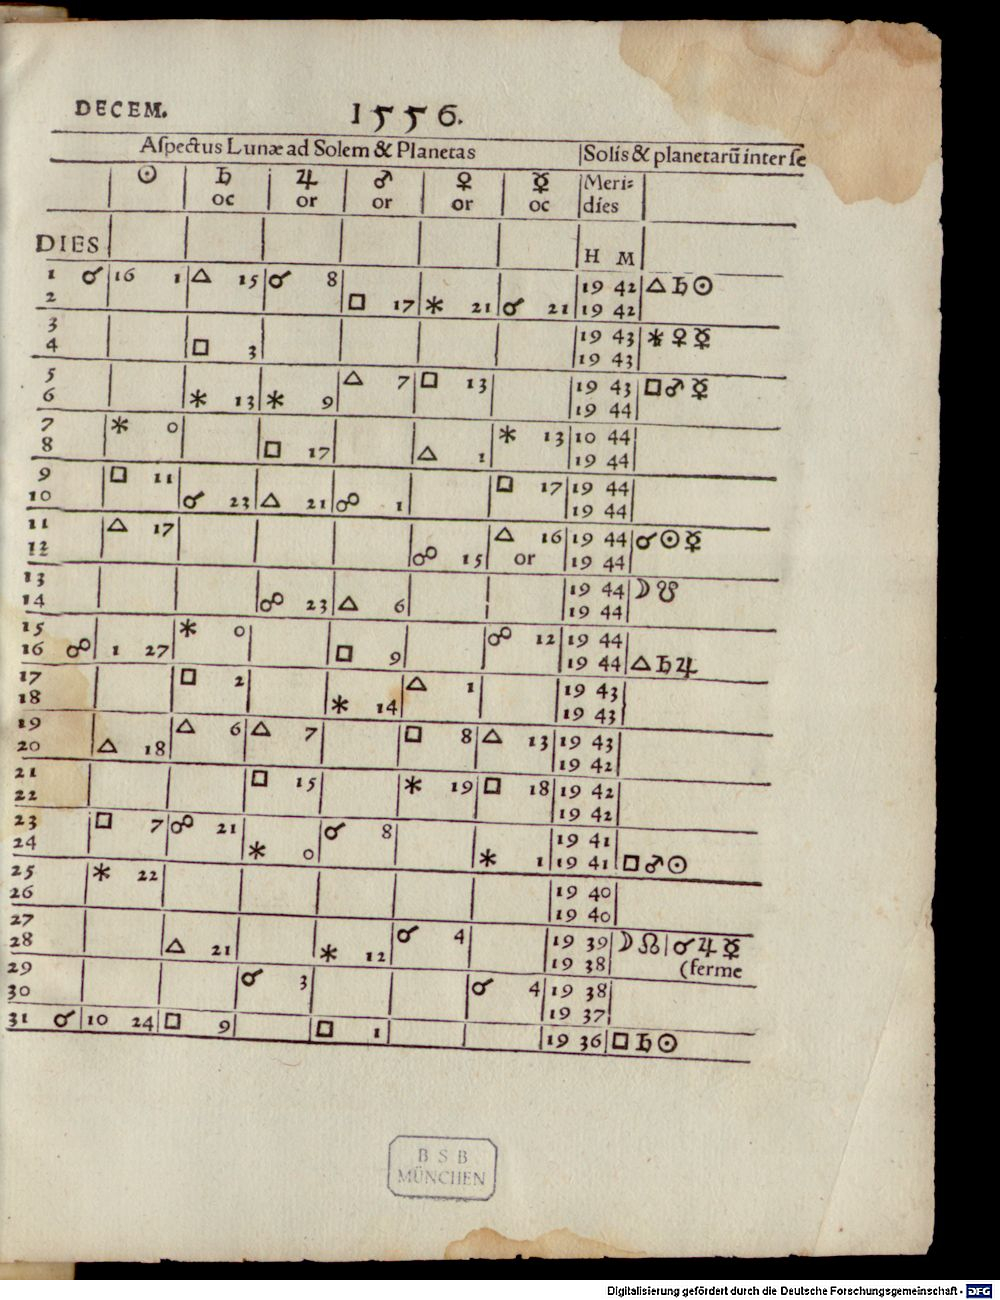 DECEM. 1556.
Aſpectus Lunæ ad Solem & Planetas Solis & planetarũ inter ſe
☉ ♄ ♃ ♂ ♀ ☿ Meri⸗
oc or or or oc dies
DIES H M
1 ☌ 16 1 △ 15 ☌ 8 19 42 △ ♄ ☉
2 □ 17 ⚹ 21 ☌ 21 19 42
3 19 43 ⚹ ♀ ☿
4 □ 3 19 43
5 △ 7 □ 13 19 43 □ ♂ ☿
6 ⚹ 13 ⚹ 9 19 44
7 ⚹ 0 ⚹ 13 10 44
8 □ 17 △ 1 19 44
9 □ 11 □ 17 19 44
10 ☌ 23 △ 21 ☍ 1 19 44
11 △ 17 △ 16 19 44 ☌ ☉ ☿
12 ☍ 15 or 19 44
13 19 44 ☽ ☋
14 ☍ 23 △ 6 19 44
15 ⚹ 0 ☍ 12 19 44
16 ☍ 1 27 □ 9 19 44 △ ♄ ♃
17 □ 2 △ 1 19 43
18 ⚹ 14 19 43
19 △ 6 △ 7 □ 8 △ 13 19 43
20 △ 18 19 42
21 □ 15 ⚹ 19 □ 18 19 42
22 19 42
23 □ 7 ☍ 21 ☌ 8 19 41
24 ⚹ 0 ⚹ 1 19 41 □ ♂ ☉
25 ⚹ 22 19 40
26 19 40
27 ☌ 4 19 39 ☽ ☊ | ☌ ♃ ☿
28 △ 21 ⚹ 12 19 38 (ferme
29 ☌ 3 ☌ 4 19 38
30 19 37
31 ☌ 10 24 □ 9 □ 1 19 36 □ ♄ ☉
B S B
MÜNCHEN
Digitalisierung gefördert durch die Deutsche Forschungsgemeinschaft - DFG